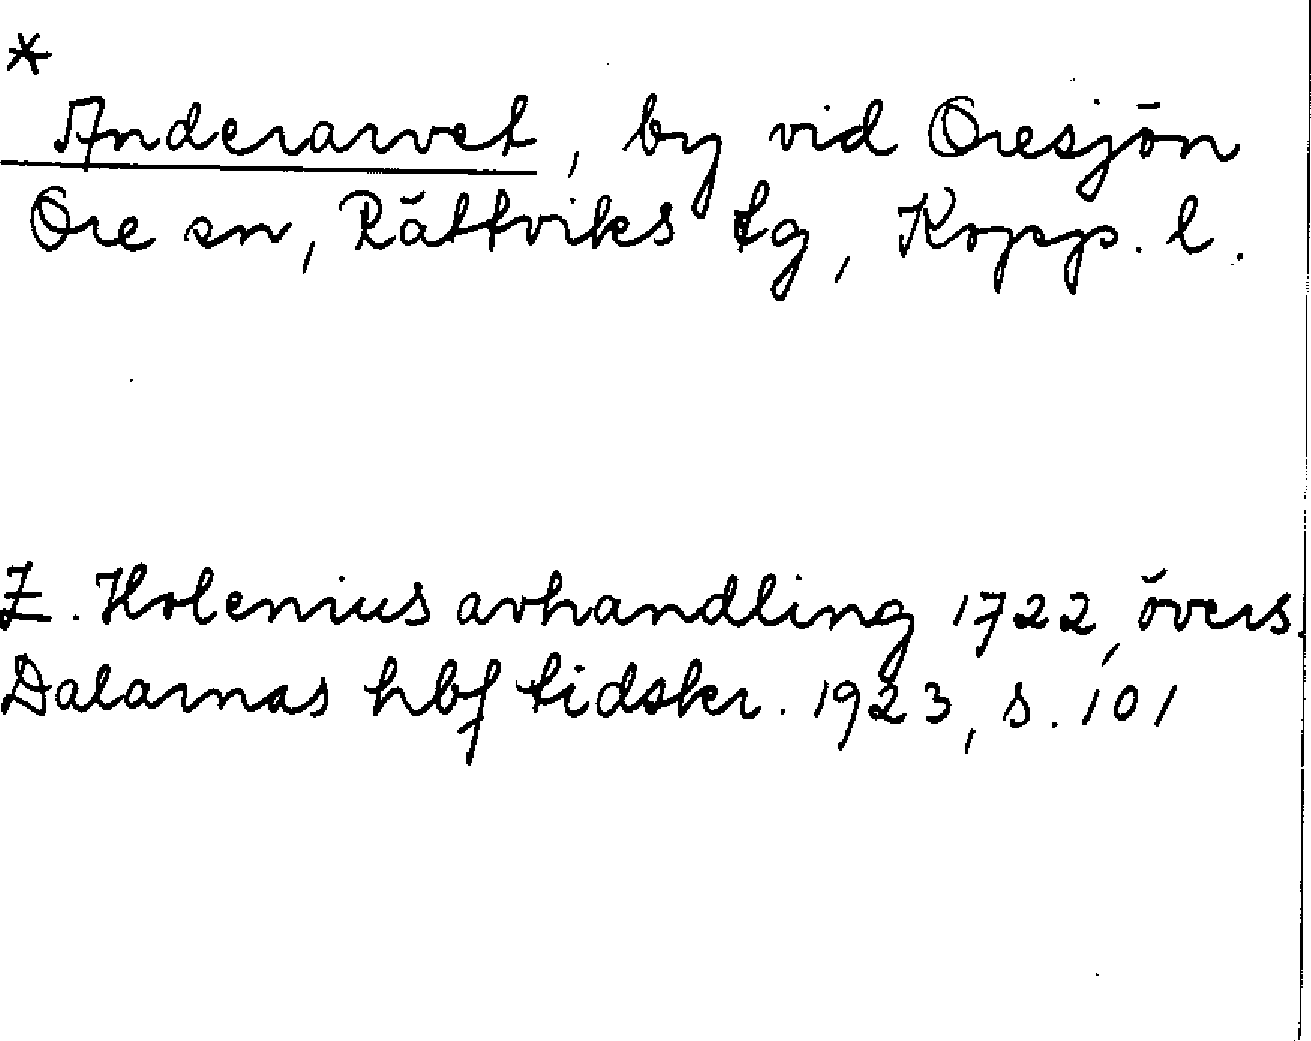 *
Anderarvet, by vid Oresjön
Ore sn, Rättviks tg, Kopp. l.
Z. Holenius avhandling 1722, övers.
Dalarnas hbf tidskr. 1923, s. 101